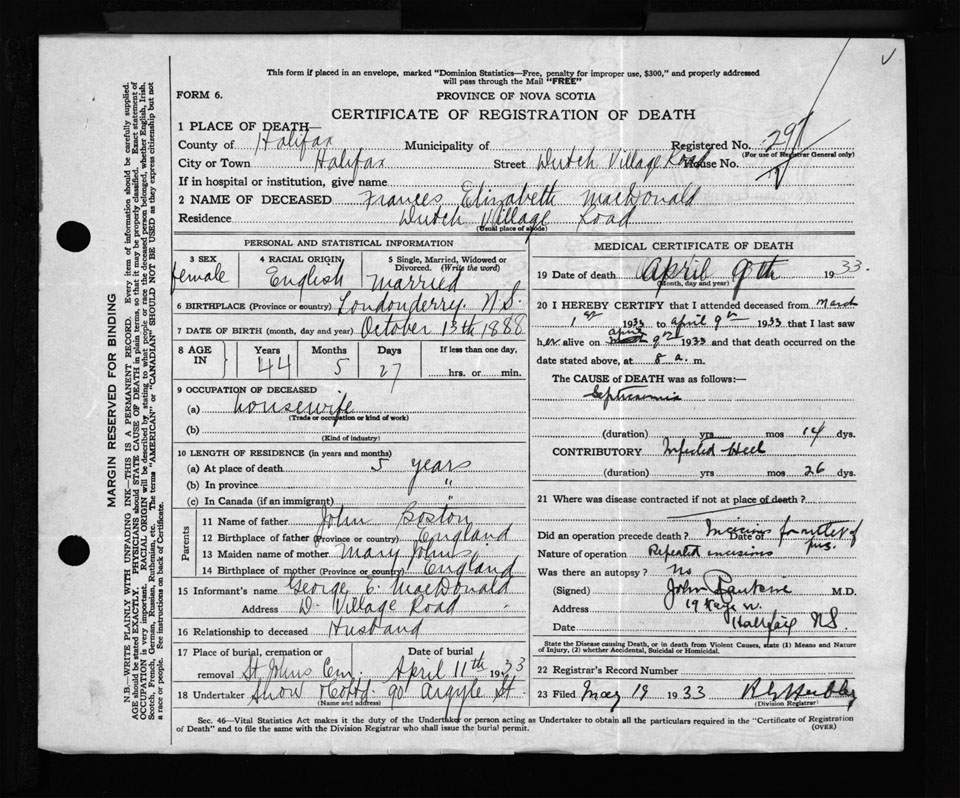 This form if placed in an envelope, marked "Dominion Statistics—Free, penalty for improper use, $300," and properly addressed
will pass through the Mail "FREE"
FORM 6.
PROVINCE OF NOVA SCOTIA
CERTIFICATE OF REGISTRATION OF DEATH
1 PLACE OF DEATH—
County of Halifax Municipality of Registered No. 297
(For use of Registrar General only)
City or Town Halifax Street Dutch Village Road House No.
If in hospital or institution, give name
2 NAME OF DECEASED Frances Elizabeth MacDonald
Residence Dutch Village Road
(Usual place of abode)
PERSONAL AND STATISTICAL INFORMATION
3 SEX female
4 RACIAL ORIGIN English
5 Single, Married, Widowed or Divorced. (Write the word) Married
6 BIRTHPLACE (Province or country) Londonderry N.S.
7 DATE OF BIRTH (month, day and year) October 13th 1888
8 AGE IN
Years Months Days If less than one day,
44 5 27 hrs. or min.
9 OCCUPATION OF DECEASED
(a) housewife
(Trade or occupation or kind of work)
(b)
(Kind of industry)
10 LENGTH OF RESIDENCE (in years and months)
(a) At place of death 5 years
(b) In province "
(c) In Canada (if an immigrant) "
Parents
11 Name of father John Boston
12 Birthplace of father (Province or country) England
13 Maiden name of mother Mary Johns
14 Birthplace of mother (Province or country) England
15 Informant's name George E. MacDonald
Address D. Village Road
16 Relationship to deceased Husband
17 Place of burial, cremation or removal Date of burial
St. Johns Cem. April 11th 1933
18 Undertaker Snow & Co Ltd. 90 Argyle St.
(Name and address)
MEDICAL CERTIFICATE OF DEATH
19 Date of death April 9th 1933.
(Month, day and year)
20 I HEREBY CERTIFY that I attended deceased from March
1st 1933 to april 9th 1933 that I last saw
her alive on april 9th 1933 and that death occurred on the
date stated above, at 8 a. m.
The CAUSE of DEATH was as follows:—
Septicaemia
(duration) yrs mos 14 dys.
CONTRIBUTORY Infected Heel
(duration) yrs mos 26 dys.
21 Where was disease contracted if not at place of death?
Did an operation precede death? Incisions Date of for outlet of pus.
Nature of operation Repeated incisions
Was there an autopsy? No
(Signed) John Rankine M.D.
Address 19 Kaye
Halifax N.S.
Date
State the Disease causing Death, or in death from Violent Causes, state (1) Means and
Nature of Injury, (2) whether Accidental, Suicidal or Homicidal.
22 Registrar's Record Number
23 Filed May 19 1933
(Division Registrar)
Sec. 46—Vital Statistics Act makes it the duty of the Undertaker or person acting as Undertaker to obtain all the particulars required in the "Certificate of Registration
of Death" and to file the same with the Division Registrar who shall issue the burial permit.
(OVER)
MARGIN RESERVED FOR BINDING
N.B.—WRITE PLAINLY WITH UNFADING INK—THIS IS A PERMANENT RECORD. Every item of information should be carefully supplied.
AGE should be stated EXACTLY. PHYSICIANS should STATE CAUSE OF DEATH in plain terms, so that it may be properly classified. Exact statement of
OCCUPATION is very important. RACIAL ORIGIN will be described by stating to what people or race the deceased person belonged, whether English, Irish,
Scotch, French, German, Russian, Ruthenian, etc. The terms "AMERICAN" or "CANADIAN" SHOULD NOT BE USED as they express citizenship but not
a race or people. See instructions on back of Certificate.